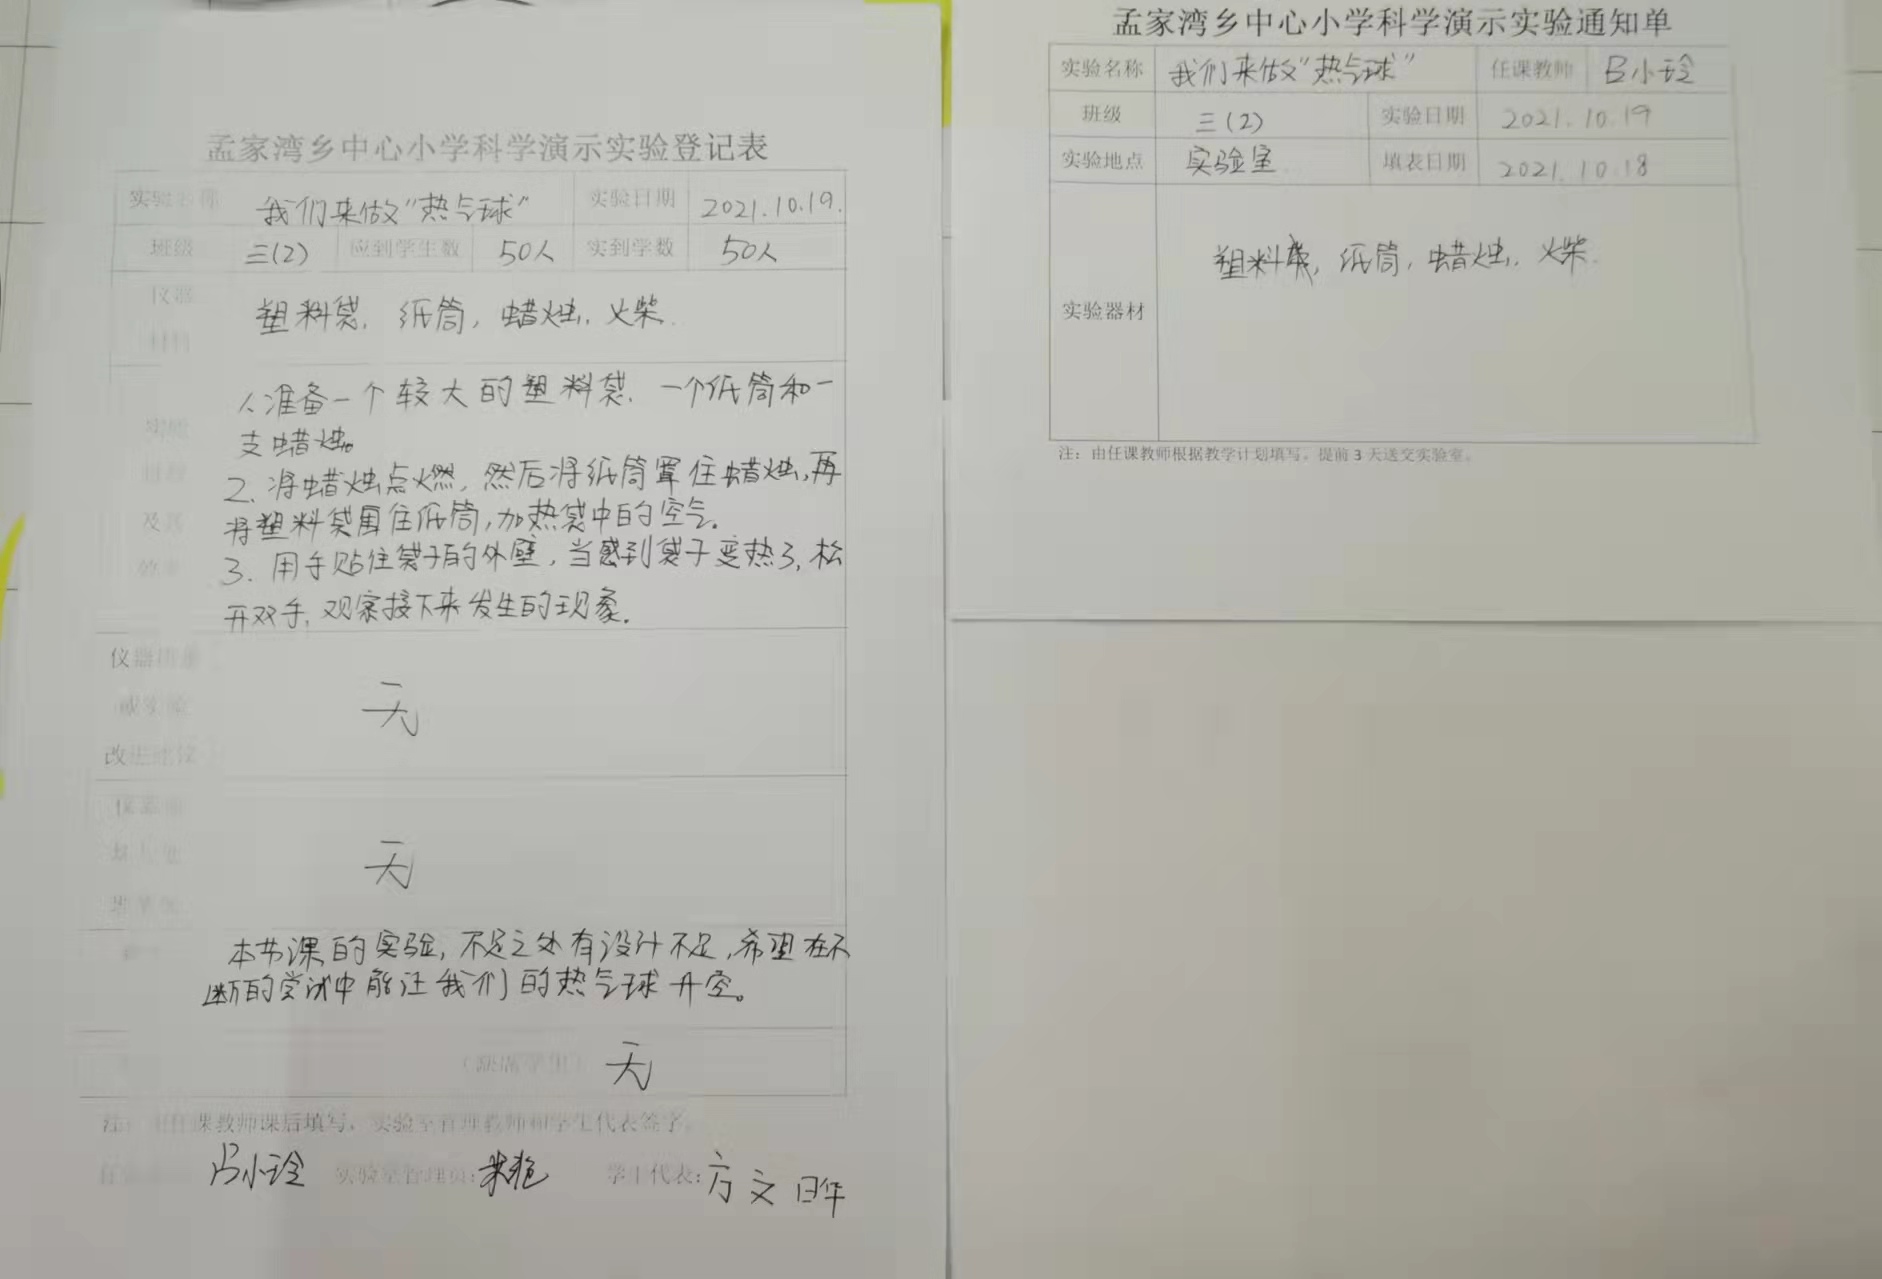 孟家湾乡中心小学科学演示实验登记表
实验名称 我们来做“热气球” 实验日期 2021.10.19.
班级 三(2) 应到学生数 50人 实到学数 50人
仪器
材料
塑料袋, 纸筒, 蜡烛, 火柴.
1.准备一个较大的塑料袋、一个纸筒和一
支蜡烛。
2. 将蜡烛点燃, 然后将纸筒罩住蜡烛,再
将塑料袋罩住纸筒,加热袋中的空气.
3. 用手贴住袋子的外壁, 当感到袋子变热了, 松
开双手, 观察接下来发生的现象.
实验
及其
仪器
或实验
改进建议
无
仪器
无
本节课的实验, 不足之处有设计不足, 希望在不
断的尝试中能让我们的热气球升空。
(缺席学生) 无
注: 由任课教师课后填写, 实验室管理教师和学生代表签字。
吕小玲 实验室管理员: 学生代表: 方文
孟家湾乡中心小学科学演示实验通知单
实验名称 我们来做“热气球” 任课教师 吕小玲
班级 三(2) 实验日期 2021.10.19
实验地点 实验室 填表日期 2021.10.18
实验器材 塑料袋, 纸筒, 蜡烛, 火柴.
注: 由任课教师根据教学计划填写, 提前 3 天送交实验室。